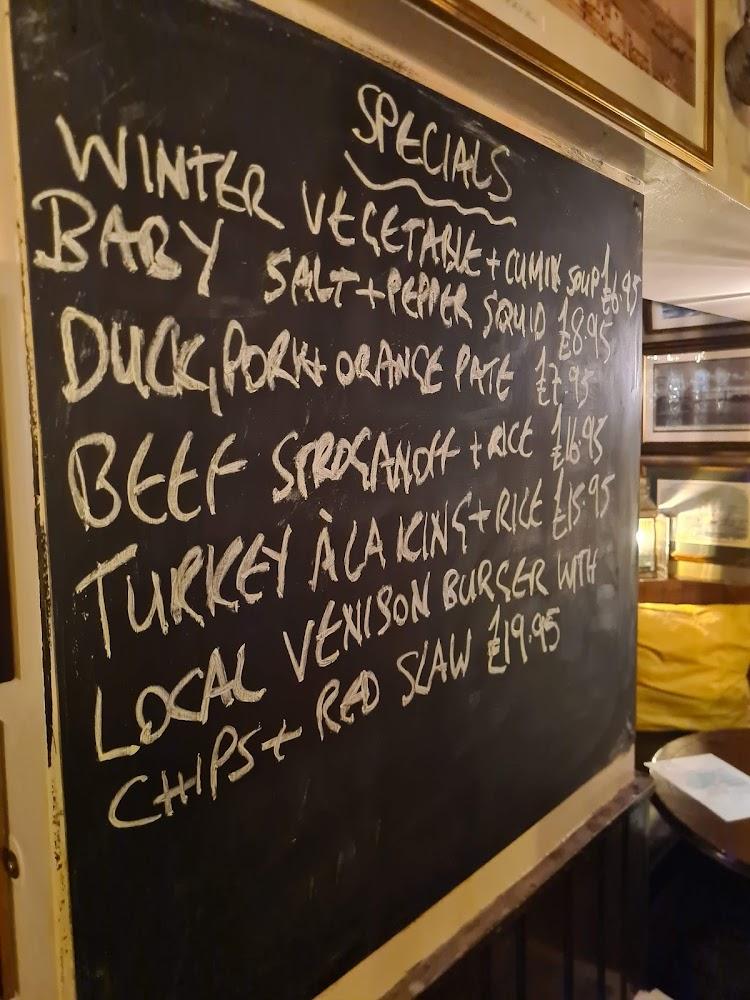 SPECIALS
WINTER VEGETABLE + CUMIN SOUP £6.95
BABY SALT + PEPPER SQUID £8.95
DUCK, PORK + ORANGE PATE £7.95
BEEF STROGANOFF + RICE £16.95
TURKEY À LA KING + RICE £15.95
LOCAL VENISON BURGER WITH
CHIPS + RED SLAW £19.95